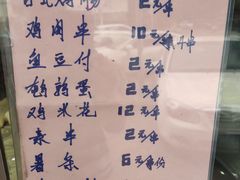 2元/串
鸡肉串 10元/3串
鱼豆付 2元/串
鹌鹑蛋 2元/串
鸡米花 2元/串
素串 2元/串
薯条 6元/份